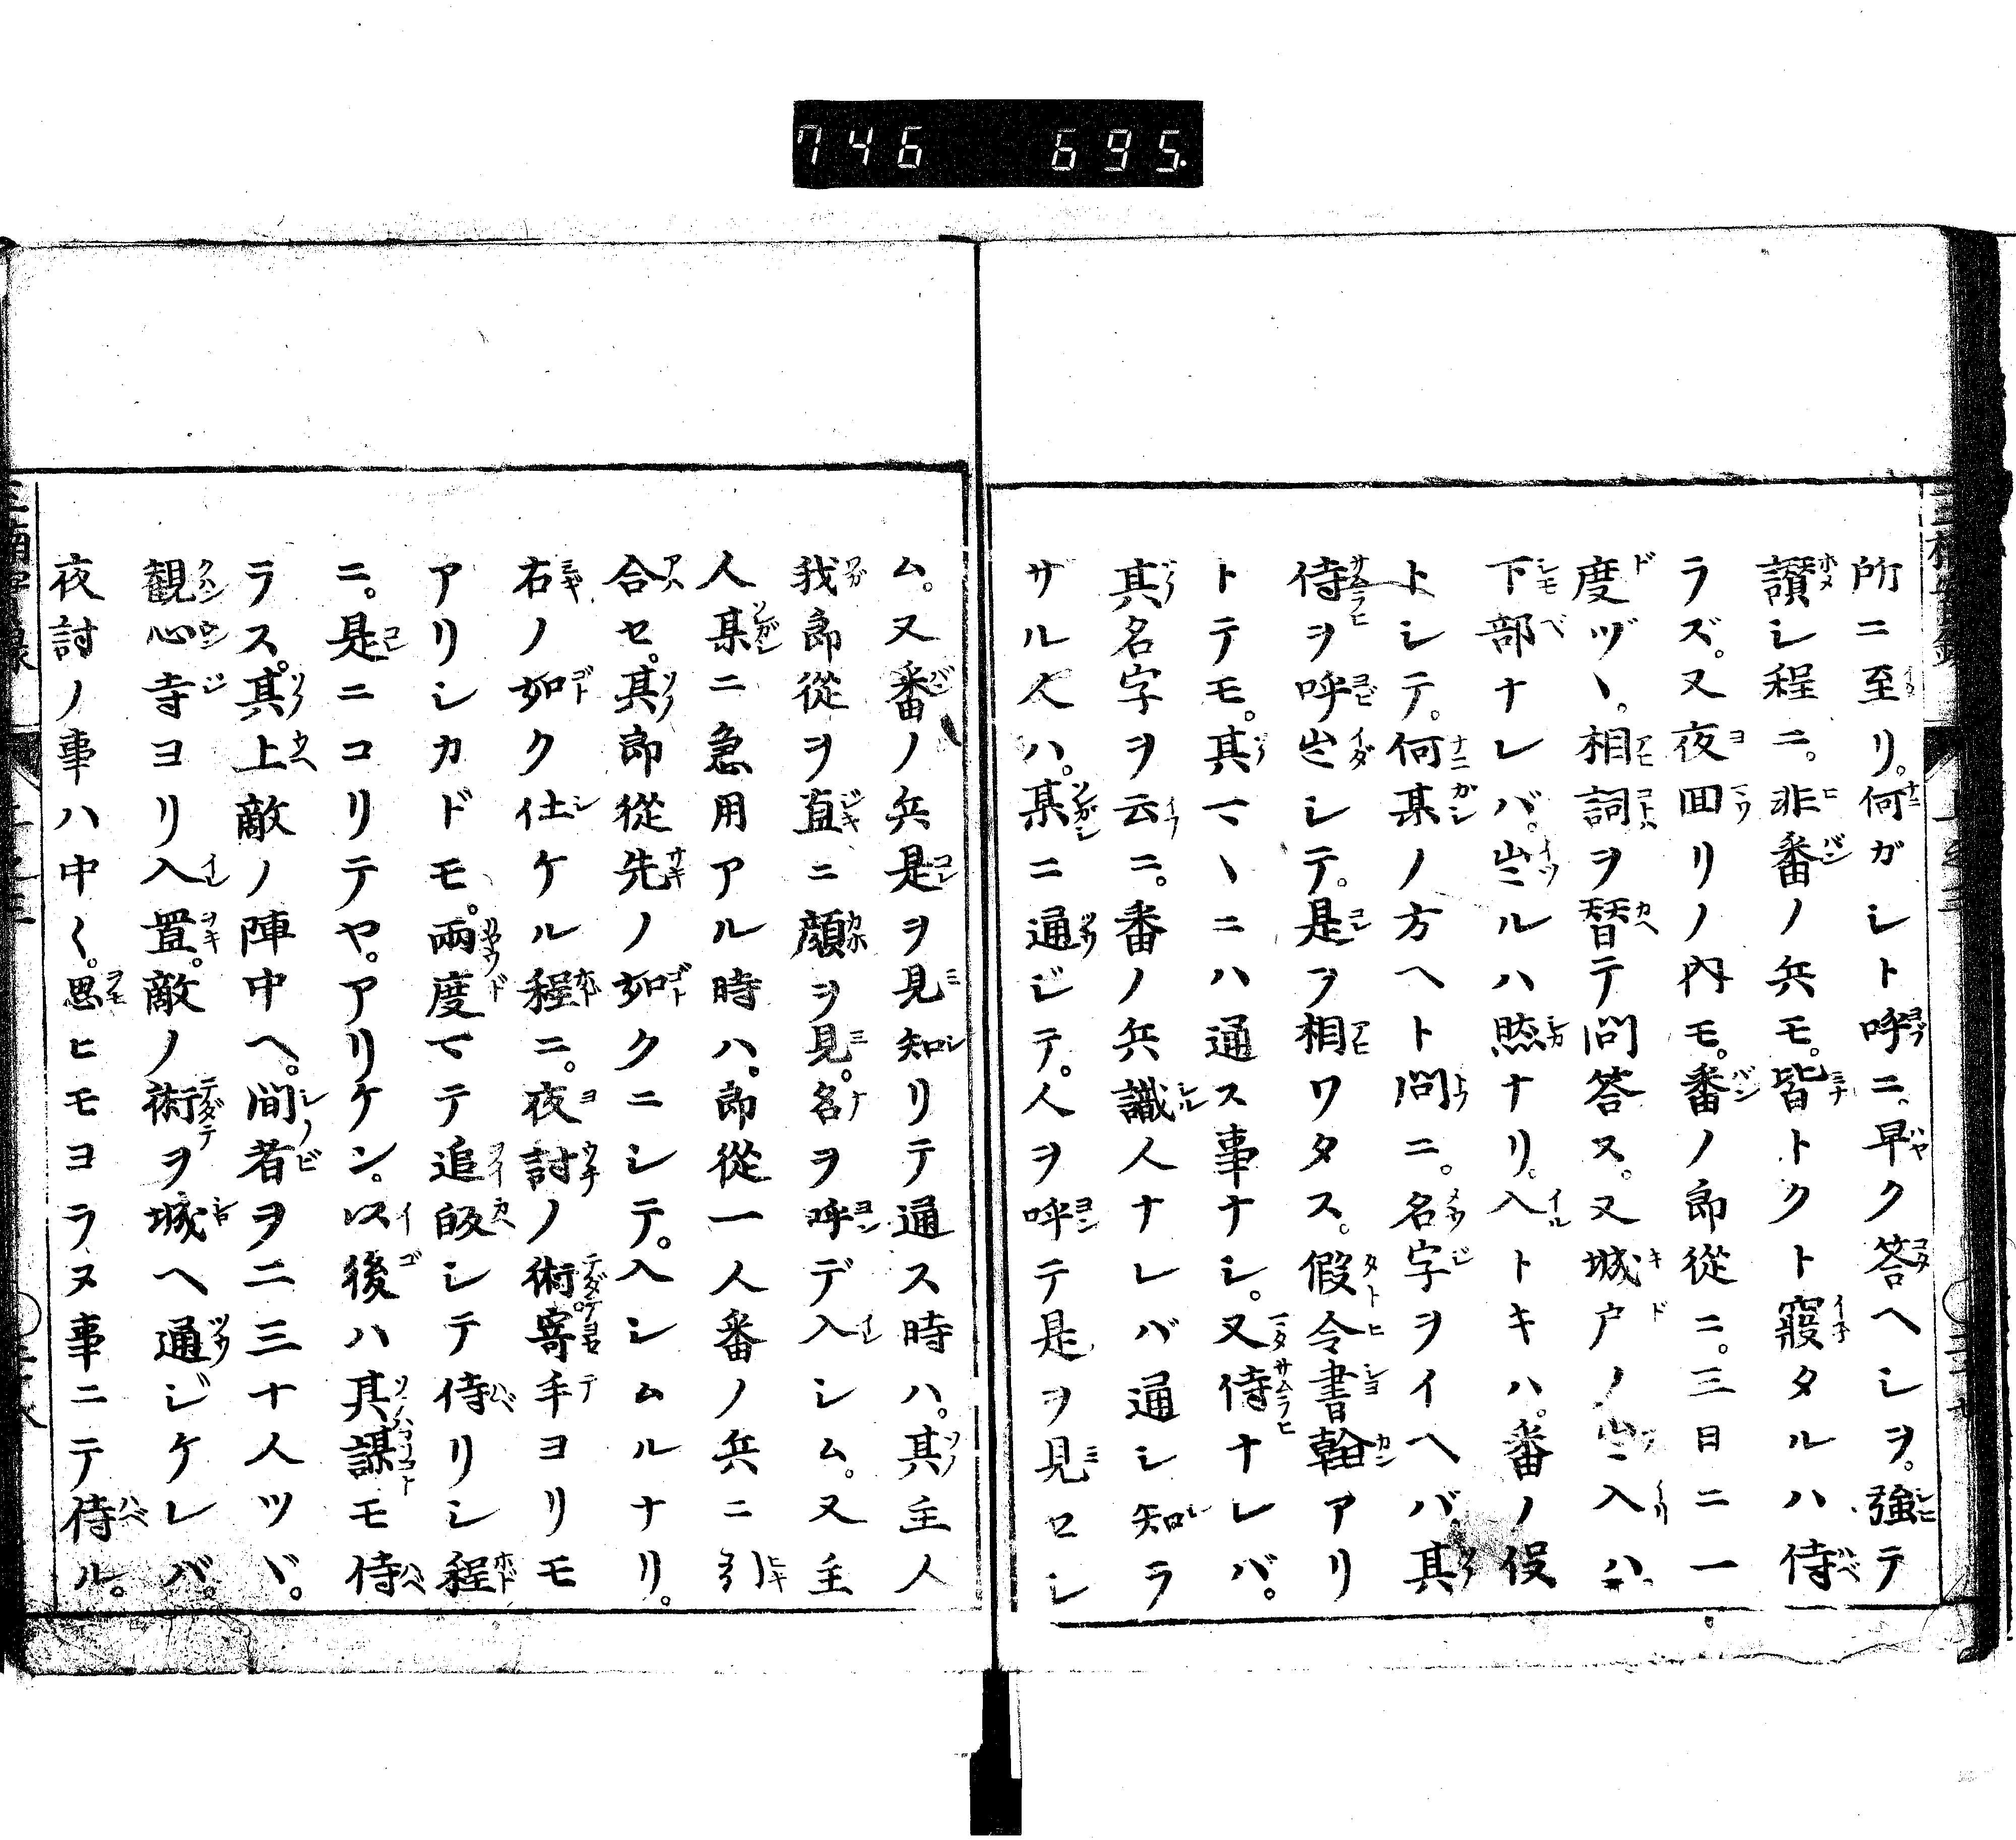 746 695.
所ニ至リ。何ガシト呼ニ。早ク答ヘシヲ。強テ
讃シ程ニ。非番ノ兵モ。皆トクト寢タルハ侍
ラズ。又夜回リノ内モ。番ノ郎從ニ。三日ニ一
度ヅヽ。相詞ヲ替テ問答ス。又城戸ノ出入ハ
下部ナレバ。出ルハ照ナリ。入トキハ。番ノ侫
トシテ。何某ノ方ヘト問ニ。名字ヲイヘバ。其
侍ヲ呼出シテ。是ヲ相ワタス。假令書翰アリ
トテモ。其マヽニハ通ス事ナシ。又侍ナレバ。
其名字ヲ云ニ。番ノ兵識人ナレバ通シ知ラ
サル人ハ。某ニ通ジテ。人ヲ呼テ是ヲ見ロシ
ム。又番ノ兵是ヲ見知リテ通ス時ハ。其主人
我郎從ヲ直ニ顔ヲ見。名ヲ呼デ入シム。又主
人某ニ急用アル時ハ。郎從一人番ノ兵ニ引
合セ。其郎從先ノ如クニシテ。入シムルナリ。
右ノ如ク仕ケル程ニ。夜討ノ術。寄手ヨリモ
アリシカドモ。兩度マテ追皈シテ侍リシ程
ニ。是ニコリテヤ。アリケン。以後ハ其謀モ侍
ラス。其上敵ノ陣中ヘ。間者ヲ二三十人ツヾ。
観心寺ヨリ入置。敵ノ術ヲ城ヘ通ジケレバ。
夜討ノ事ハ中〱。思ヒモヨラヌ事ニテ侍ル。